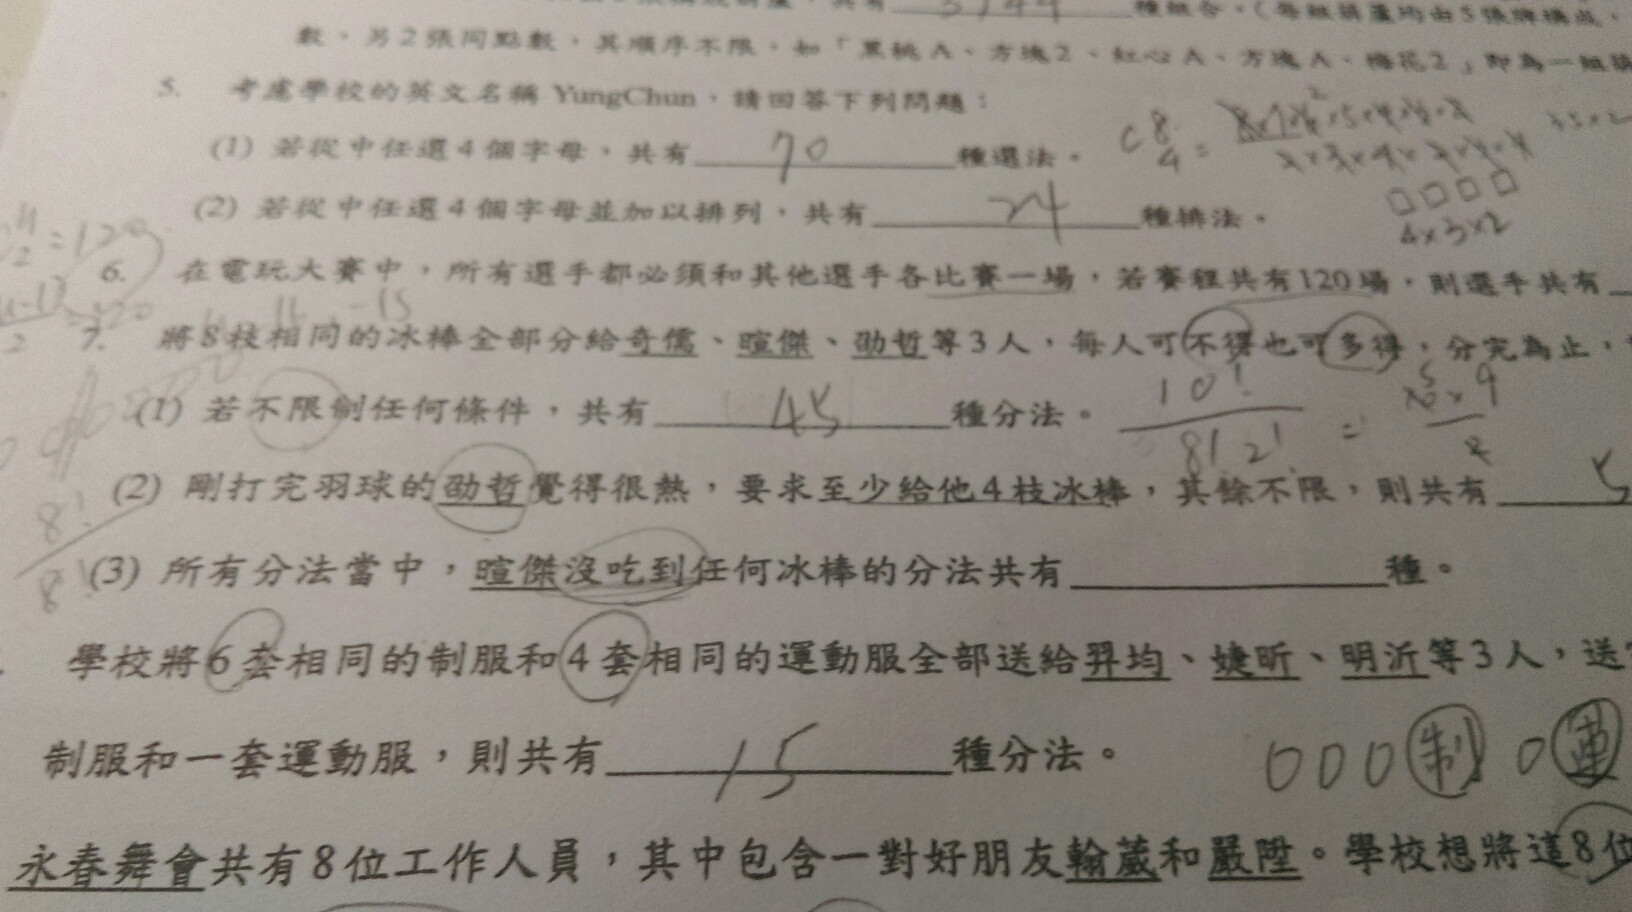 種組合。(每組葫蘆均由5張牌構成,
數,另2張同點數,其順序不限,如「黑桃A、方塊2、紅心A、方塊A、梅花2」即為一組
5. 考慮學校的英文名稱 YungChun,請回答下列問題:
(1) 若從中任選4個字母,共有 70 種選法。
(2) 若從中任選4個字母並加以排列,共有 24 種排法。
4×3×2
6. 在電玩大賽中,所有選手都必須和其他選手各比賽一場,若賽程共有120場,則選手共有
7. 將8枝相同的冰棒全部分給奇儒、暄傑、劭哲等3人,每人可不得也可多得,分完為止,
(1) 若不限制任何條件,共有 45 種分法。
10!
8! 2!
(2) 剛打完羽球的劭哲覺得很熱,要求至少給他4枝冰棒,其餘不限,則共有
8!
8!
(3) 所有分法當中,暄傑沒吃到任何冰棒的分法共有 種。
學校將6套相同的制服和4套相同的運動服全部送給羿均、婕昕、明沂等3人,送
制服和一套運動服,則共有 15 種分法。 000制0運
永春舞會共有8位工作人員,其中包含一對好朋友翰葳和嚴陞。學校想將這8位